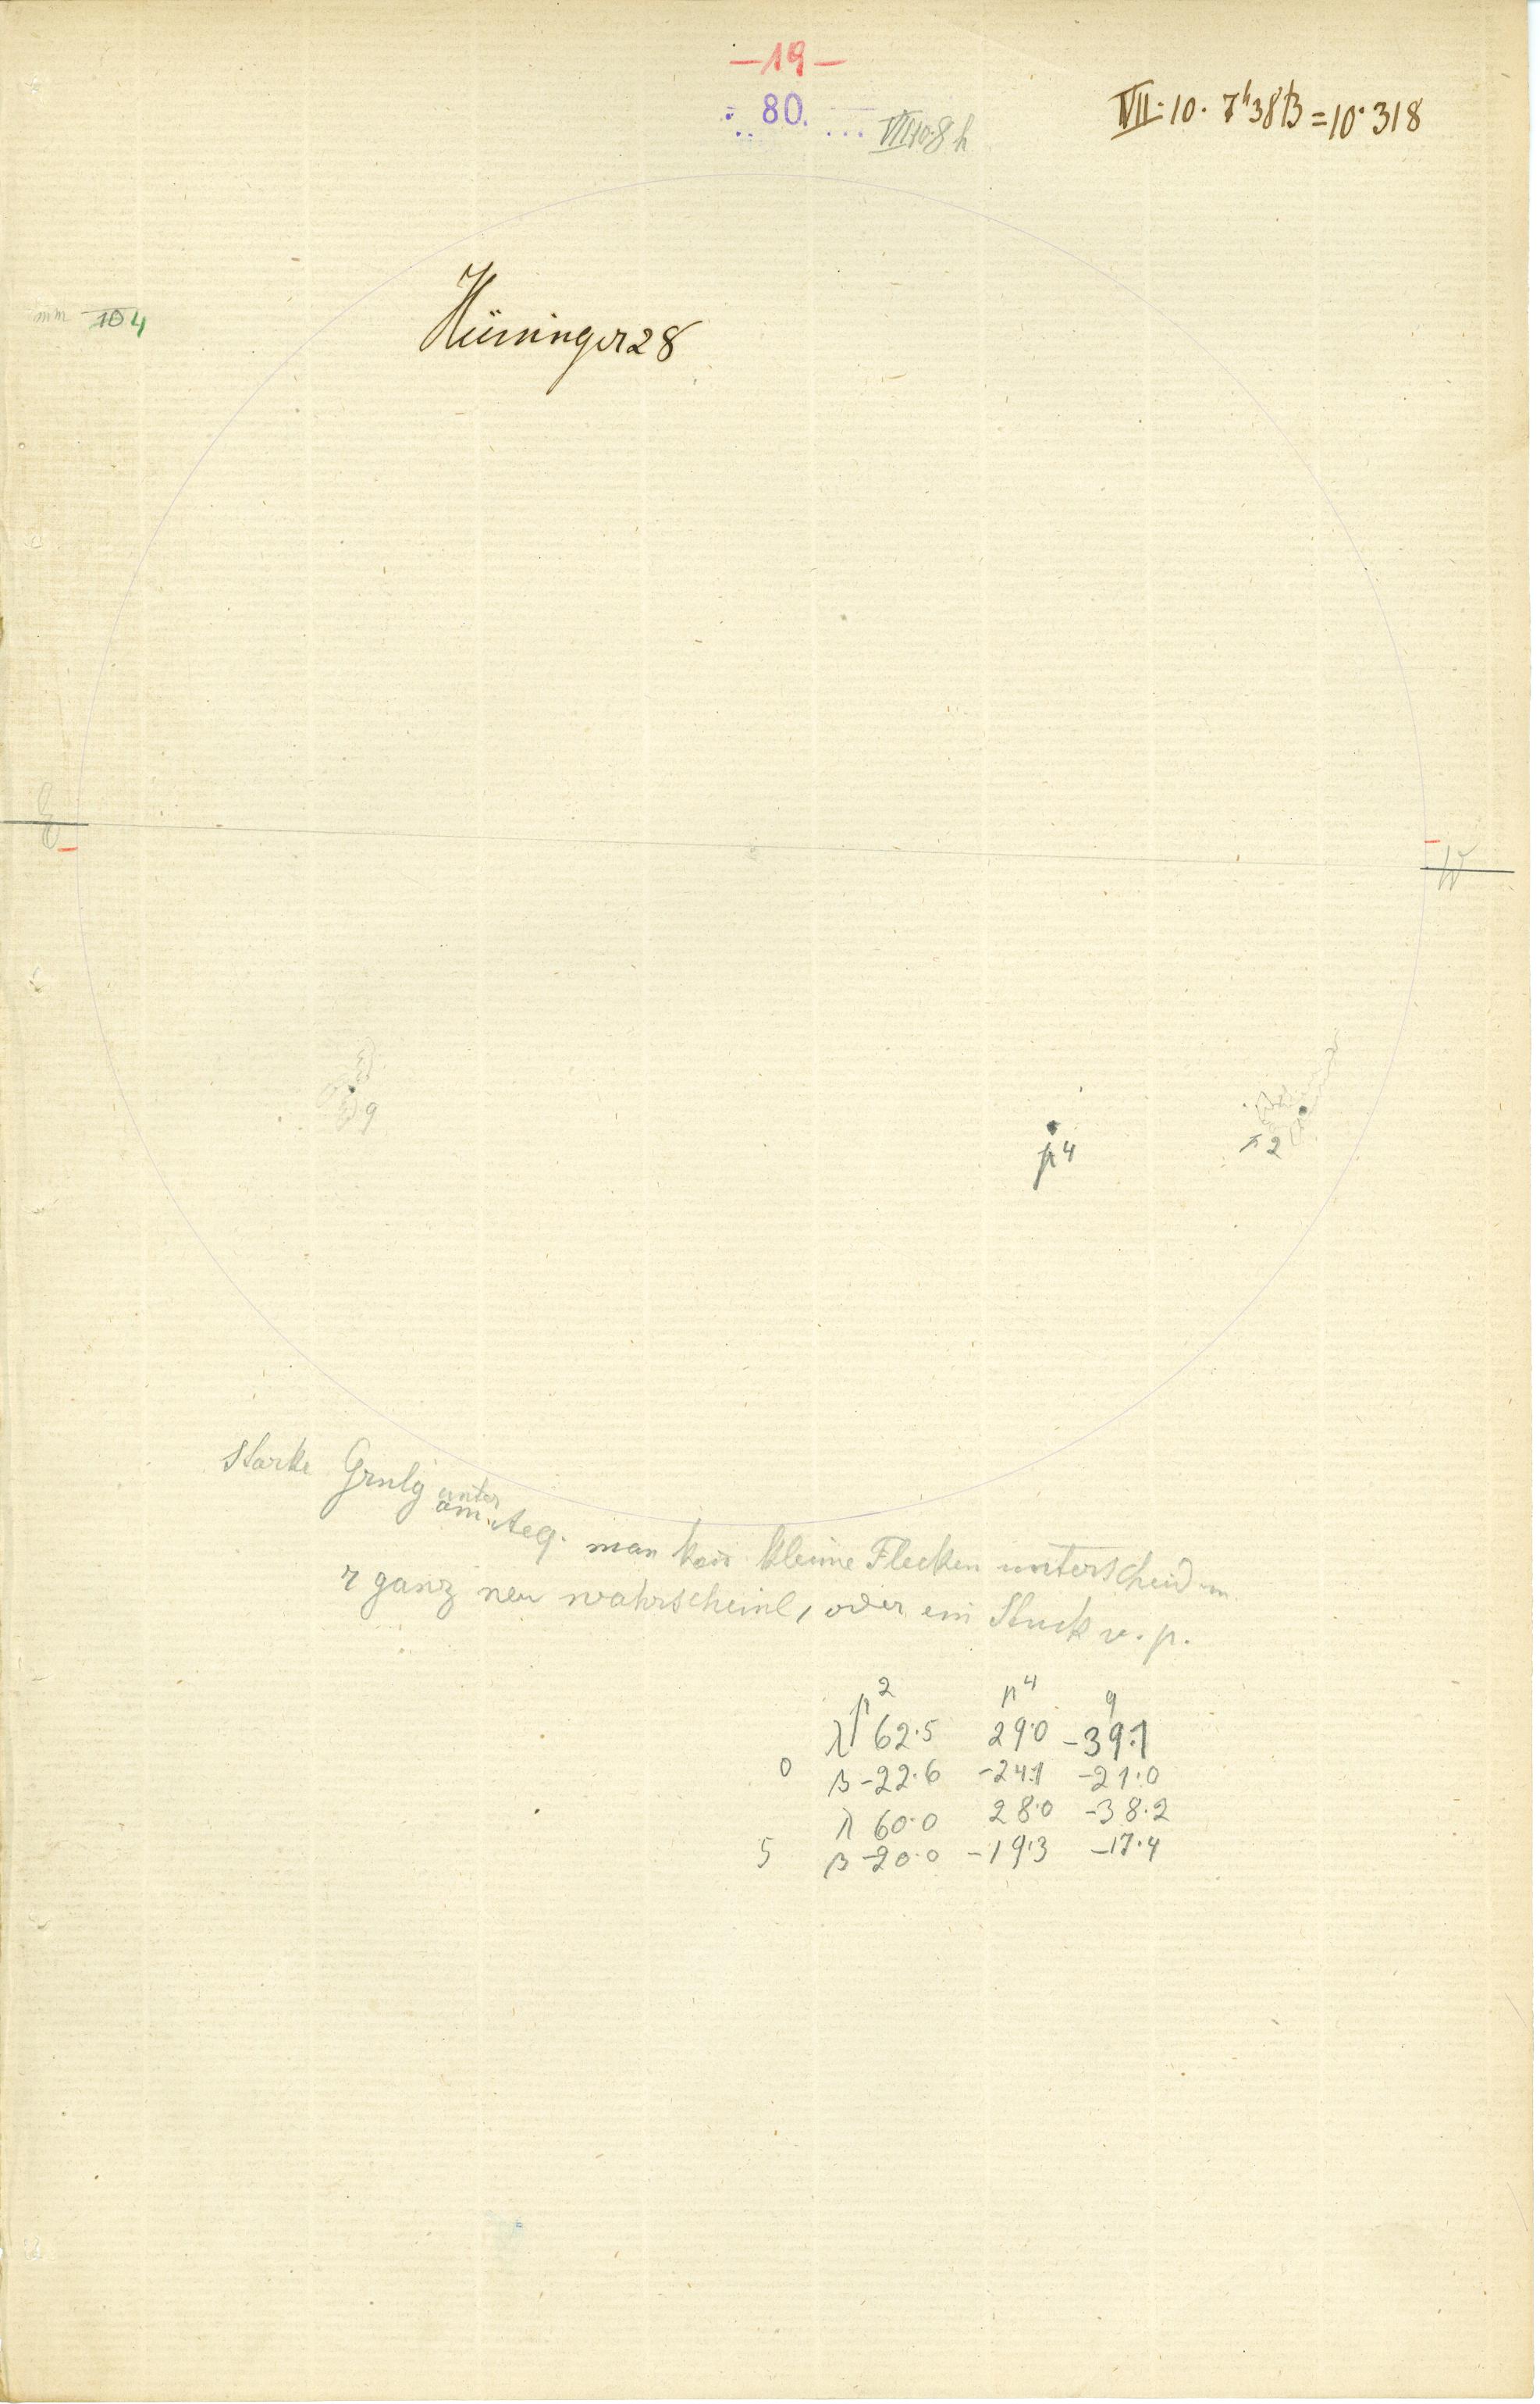 —19—
80.
VII 10. 8 h
VII. 10. 7h 38 = 10.318
mm 104
E
W
q
p4
2
Starke Grnlg unter
am Aeq. man kan kleine Flecken unterscheiden
r ganz neu wahrscheinl, oder ein Stuck v. p.
p2 p4 q
λ 62.5 29.0 -39.1
0 β -22.6 -24.1 -21.0
λ 60.0 28.0 -38.2
5 β -20.0 -19.3 -17.4